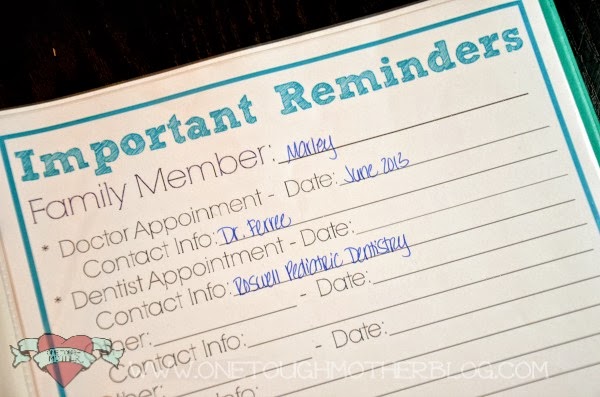 Important Reminders
Family Member: Marley
* Doctor Appoinment - Date: June 2013
Contact Info: Dr. Ferree
* Dentist Appointment - Date:
Contact Info: Roswell Pediatric Dentistry
- Date:
Contact Info:
- Date:
WWW.ONETOUGHMOTHERBLOG.COM